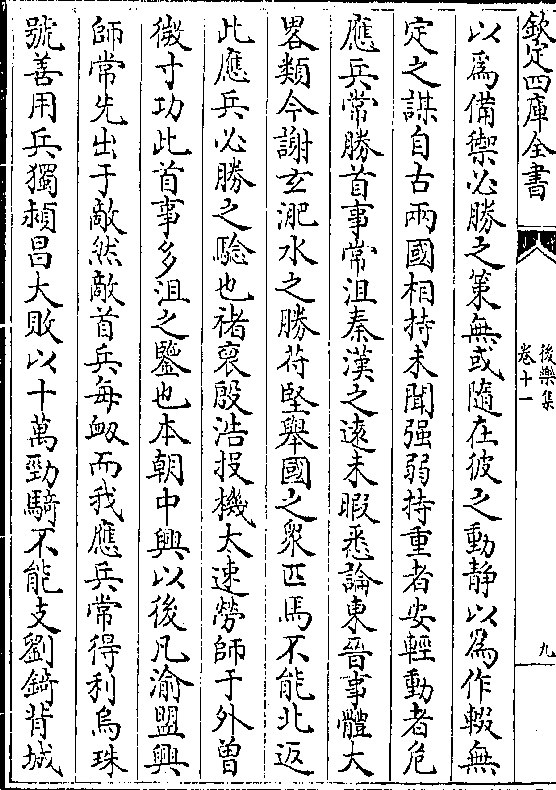 欽定四庫全書
後樂集
卷十一
九
以爲備禦必勝之策無或隨在彼之動静以爲作輟無
定之謀自古兩國相持未聞强弱持重者安輕動者危
應兵常勝首事常沮秦漢之遠未暇悉論東晉事體大
畧類今謝玄淝水之勝苻堅舉國之衆匹馬不能北返
此應兵必勝之騐也禇裒殷浩投機太速勞師于外曽
㣲寸功此首事多沮之鑒也本朝中興以後凡渝盟興
師常先出于敵然敵首兵每衂而我應兵常得利烏珠
號善用兵獨頼昌大敗以十萬勁騎不能支劉錡背城